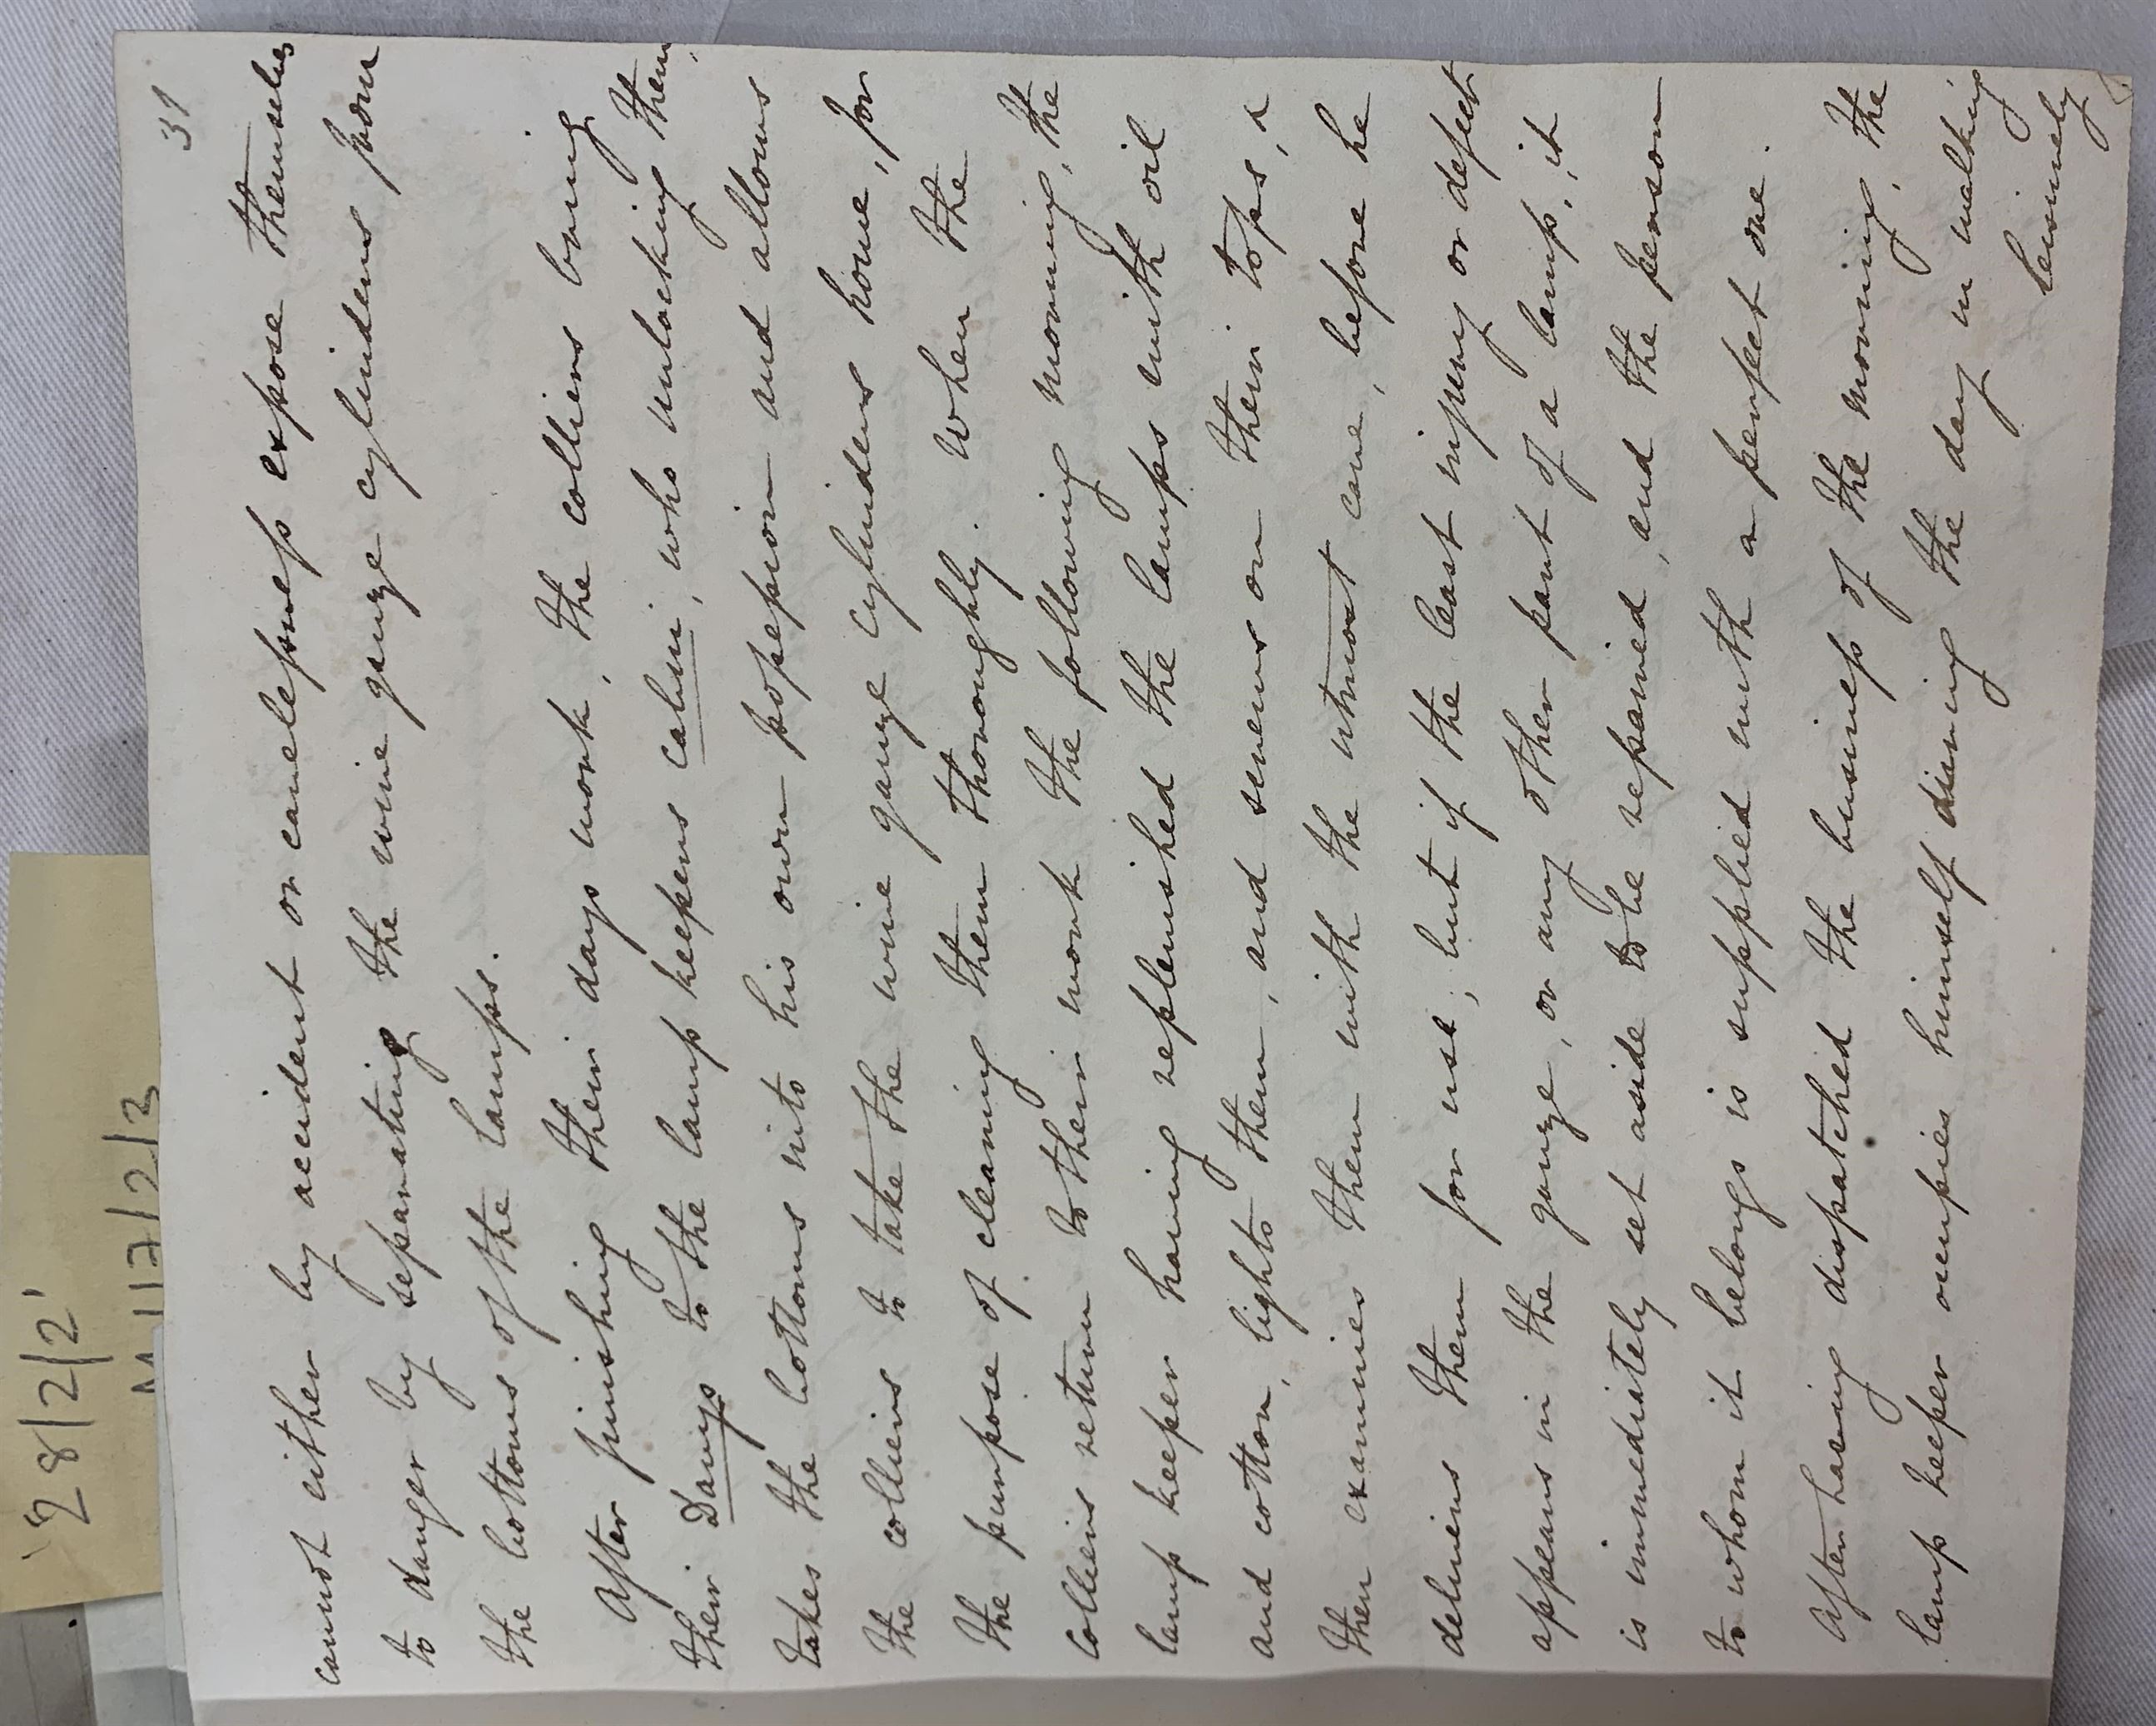 31
cannot either by accident or carelessness expose themselves
to danger by separating the wire gauze cylinders from
the bottoms of the lamps.
After finishing their days work, the colliers bring
their Davys to the lamp keepers cabin, who unlocking them,
takes the bottoms into his own possession and allows
the colliers to take the wire gauze cylinders home, for
the purpose of cleaning them thoroughly. When the
colliers return to their work the following morning, the
lamp keeper having replenished the lamps with oil
and cotton, lights them, and screws on their tops, &
then examines them with the utmost care, before he
delivers them for use; but if the least injury or defect
appears in the gauze, or any other part of a lamp, it
is immediately set aside to be repaired, and the person
to whom it belongs is supplied with a perfect one.
After having dispatched the business of the morning, the
lamp keeper occupies himself during the day in walking
leisurely
'28/2/2'
M17/2/3